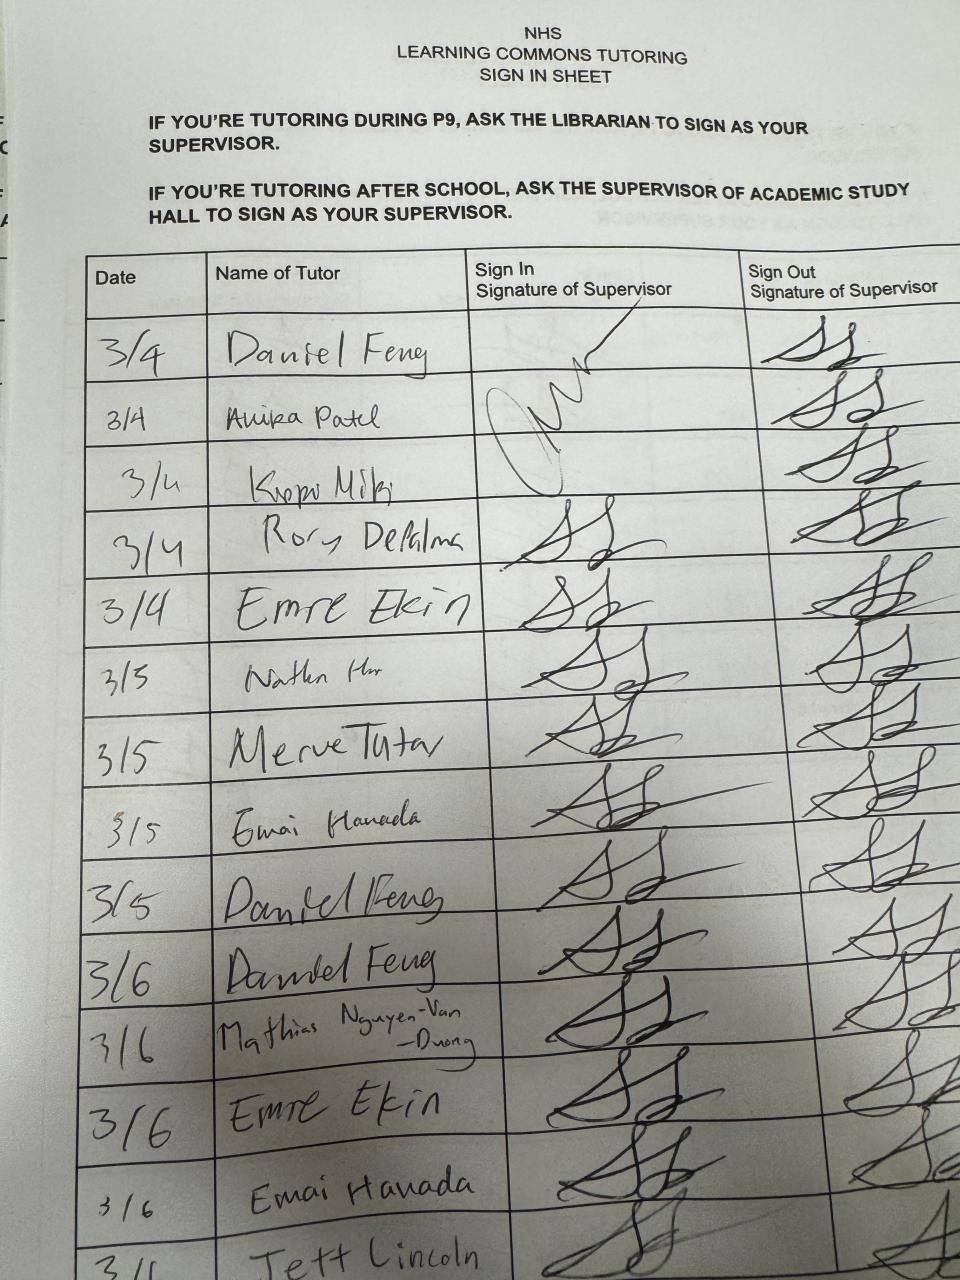 NHS
LEARNING COMMONS TUTORING
SIGN IN SHEET
IF YOU'RE TUTORING DURING P9, ASK THE LIBRARIAN TO SIGN AS YOUR
SUPERVISOR.
IF YOU'RE TUTORING AFTER SCHOOL, ASK THE SUPERVISOR OF ACADEMIC STUDY
HALL TO SIGN AS YOUR SUPERVISOR.
Date Name of Tutor Sign In Signature of Supervisor Sign Out Signature of Supervisor
3/4 Daniel Feng
3/4 Anika Patel
3/4 Miki
3/4 Rory DePalma
3/4 Emre Ekin
3/5
3/5 Merve Tutar
3/5 Emai Hanada
3/5 Daniel Feng
3/6 Daniel Feng
3/6 Mathias Nguyen-Van
-Duong
3/6 Emre Ekin
3/6 Emai Hanada
Jett Lincoln